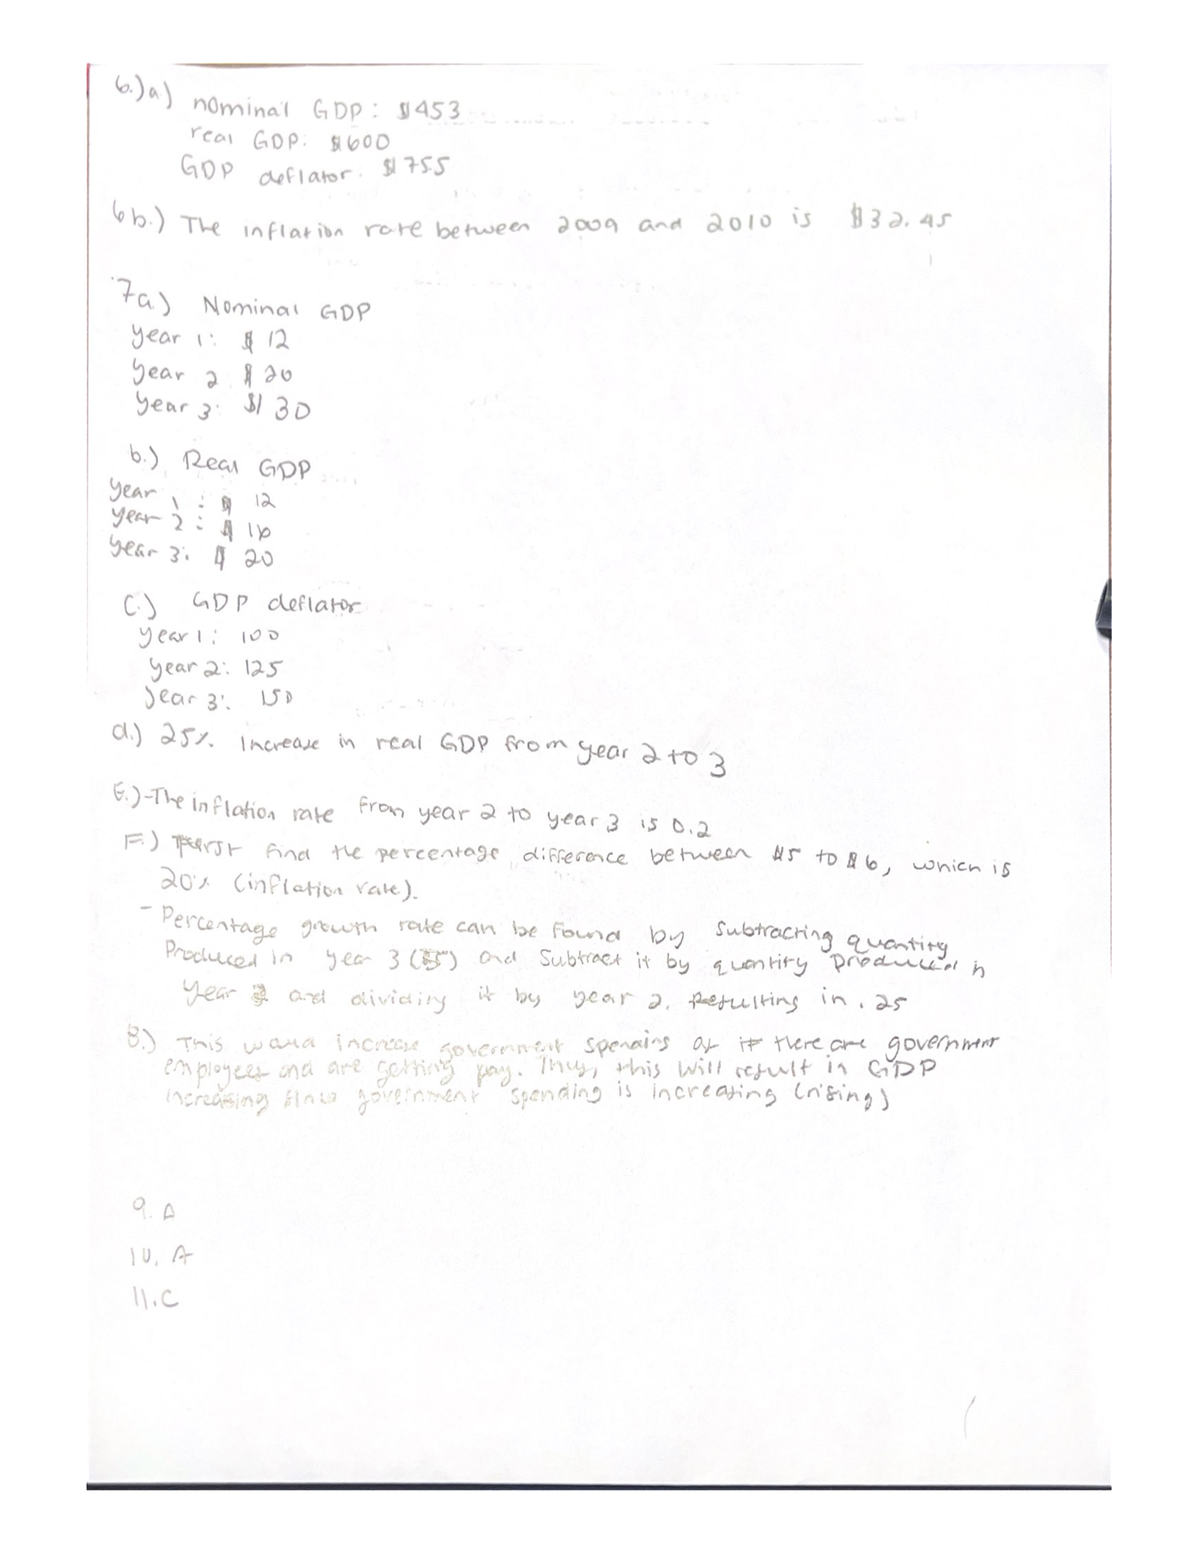 6.) a) nominal GDP: $453
real GDP: $600
GDP deflator. $755
6b.) The inflation rate between 2009 and 2010 is $32.45
7a) Nominal GDP
year 1: $ 12
year 2 $ 20
year 3: $ 30
b.) Real GDP
year 1 : $ 12
year 2 : $ 16
year 3: $ 20
C.) GDP deflator
year 1: 100
year 2: 125
year 3: 150
d.) 25% Increase in real GDP from year 2 to 3
E.) -The inflation rate from year 2 to year 3 is 0.2
F.) First find the percentage difference between $5 to $6, which is
20% (inflation rate).
- Percentage growth rate can be found by subtracting quantity
Produced in year 3 (5) and Subtract it by quantity produced in
year 2 and dividing it by year 2. Resulting in .25
8.) This would increase government spending as if there are government
employees and are getting pay. Thus, this will result in GDP
increasing since government spending is increasing (rising)
9. A
10. A
11. C